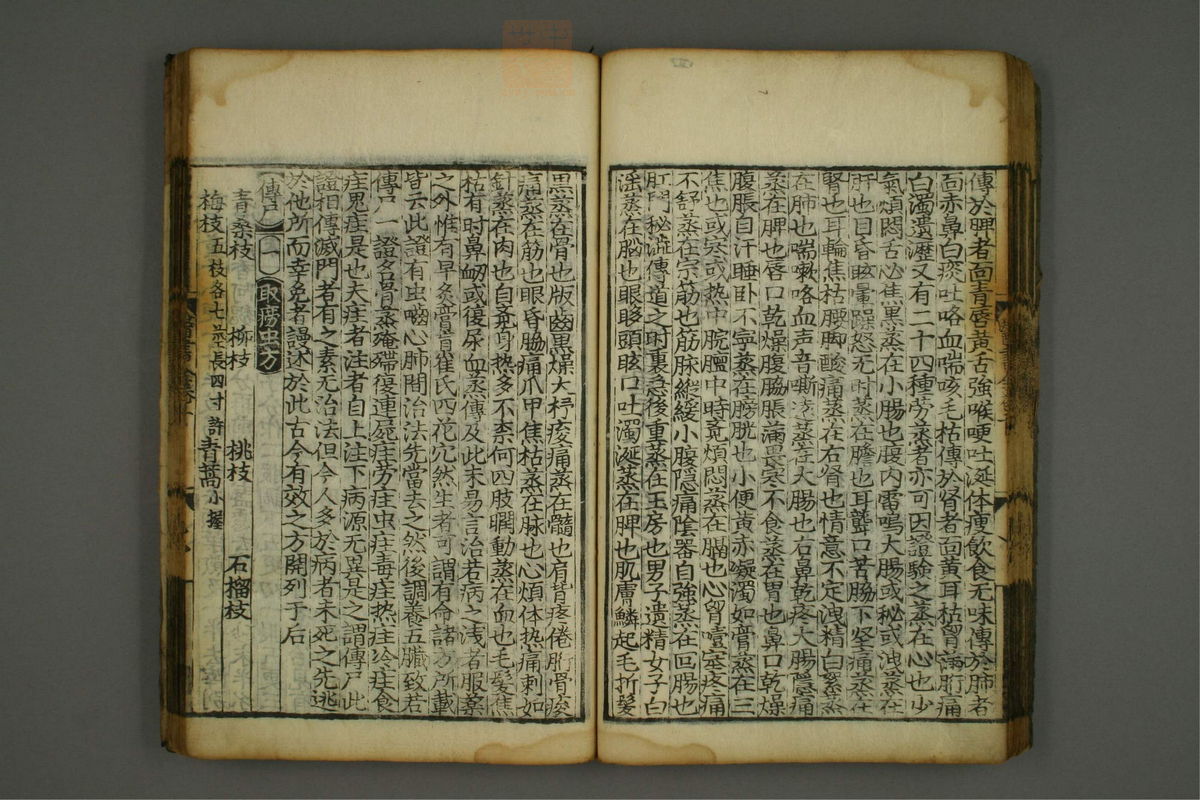 傳於脾者面青唇黃舌強喉哽吐涎体瘦飲食无味傳於肺者
面赤鼻白痰吐咯血喘咳毛枯傳於腎者面黃耳枯胷滿胻痛
白濁遺瀝又有二十四種勞蒸者亦可因證驗之蒸在心也少
氣煩悶舌必焦黑蒸在小腸也腹内雷鳴大腸或秘或洩蒸在
肝也目昏眩暈躁怒无時蒸在膽也耳聾口苦脇下堅痛蒸在
腎也耳輪焦枯腿脚酸痛蒸在右腎也情意不定洩精白蒸
在肺也喘嗽咯血声音嘶蒸在大腸也右鼻乾疼大腸隱痛
蒸在脾也唇口乾燥腹脇脹滿畏寒不食蒸在胃也鼻口乾燥
腹脹自汗睡卧不寧蒸在膀胱也小便黃赤凝濁如膏蒸在三
焦也或寒或热中脘膻中時竟煩悶蒸在膈也心胷噎塞疼痛
不舒蒸在宗筋也筋脉縱緩小腹隱痛陰器自強蒸在回腸也
肛門秘澁傳道之時裏急後重蒸在玉房也男子遺精女子白
淫蒸在腦也眼眵頭眩口吐濁涎蒸在脾也肌膚鱗起毛折髮
黑蒸在骨也版齒黑燥大杼痠痛蒸在髓也肩背疼倦胻骨痠
痛蒸在筋也眼昏脇痛爪甲焦枯蒸在脉也心煩体热痛刺如
針蒸在肉也自竟身热多不柰何四肢瞤動蒸在血也毛髮焦
枯有時鼻衂或復尿血蒸傳及此未易言治若病之浅者服藥
之外惟有早灸膏肓崔氏四花穴然生者可謂有命諸方所載
皆云此證有虫嚙心肺間治法先當去之然後調養五臟致若
傳尸一證名骨蒸殗殜復連屍疰勞疰虫疰毒疰热疰冷疰食
疰鬼疰是也夫疰者注者自上注下病源无異是之謂傳尸此
證相傳滅門者有之素无治法但今人多於病者未死之先逃
於他所而幸免者謾述於此古今有效之方開列于后
傳尸 一 取癆虫方
青桑枝 柳枝 桃枝 石榴枝
梅枝五枝各七莖長四寸許 青蒿小握